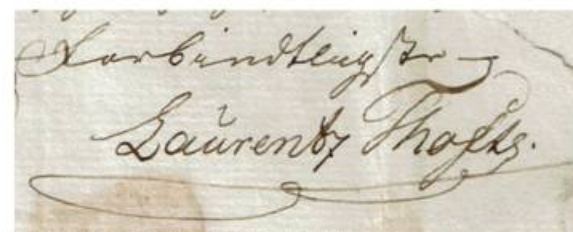 Forbindtligste
Laurentz Thoftz.